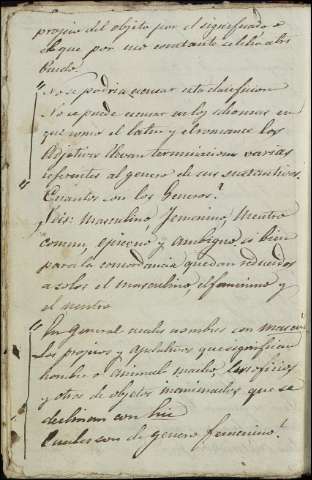 propio del objeto por el significado o
el que por uso constante
buido.
No se podria escusar esta clasificacion
No se puede escusar en los idiomas en
que como el latin y el romance los
Adjetivos llevan terminaciones varias
referentes al genero de sus sustantivos.
Cuantos son los Generos?
Seis: Masculino, femenino, Neutro
comun, epiceno y Ambiguo, si bien
para la concordancia quedan reducidos
a solos el masculino, el femenino y
el neutro
En General cuales nombres son mascu
los propios y Apelativos que significan
hombre o Animal macho, los oficios
y otros de objetos inanimados que se
declinan con hic
Cuales son de genero femenino?